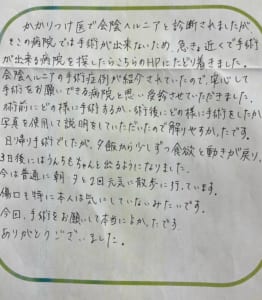 かかりつけ医で会陰ヘルニアと診断されましたが
その病院では手術が出来ないため、急きょ近くで手術
が出来る病院を探したらこちらのHPにたどり着きました。
会陰ヘルニアの手術症例が紹介されていたので、安心して
手術をお願いできる病院と思い受診させていただきました。
術前にどの様に手術するか、術後にどの様に手術したか
写真を使用して説明をしていただいたので解りやすかったです。
日帰り手術でしたが、夕飯から少しずつ食欲と動きが戻り、
3日後にはうんちもちゃんと出るようになりました。
今は普通に朝夕と2回元気に散歩に行っています。
傷口も特に本人は気にしていないみたいです。
今回、手術をお願いして本当によかったです
ありがとうございました。